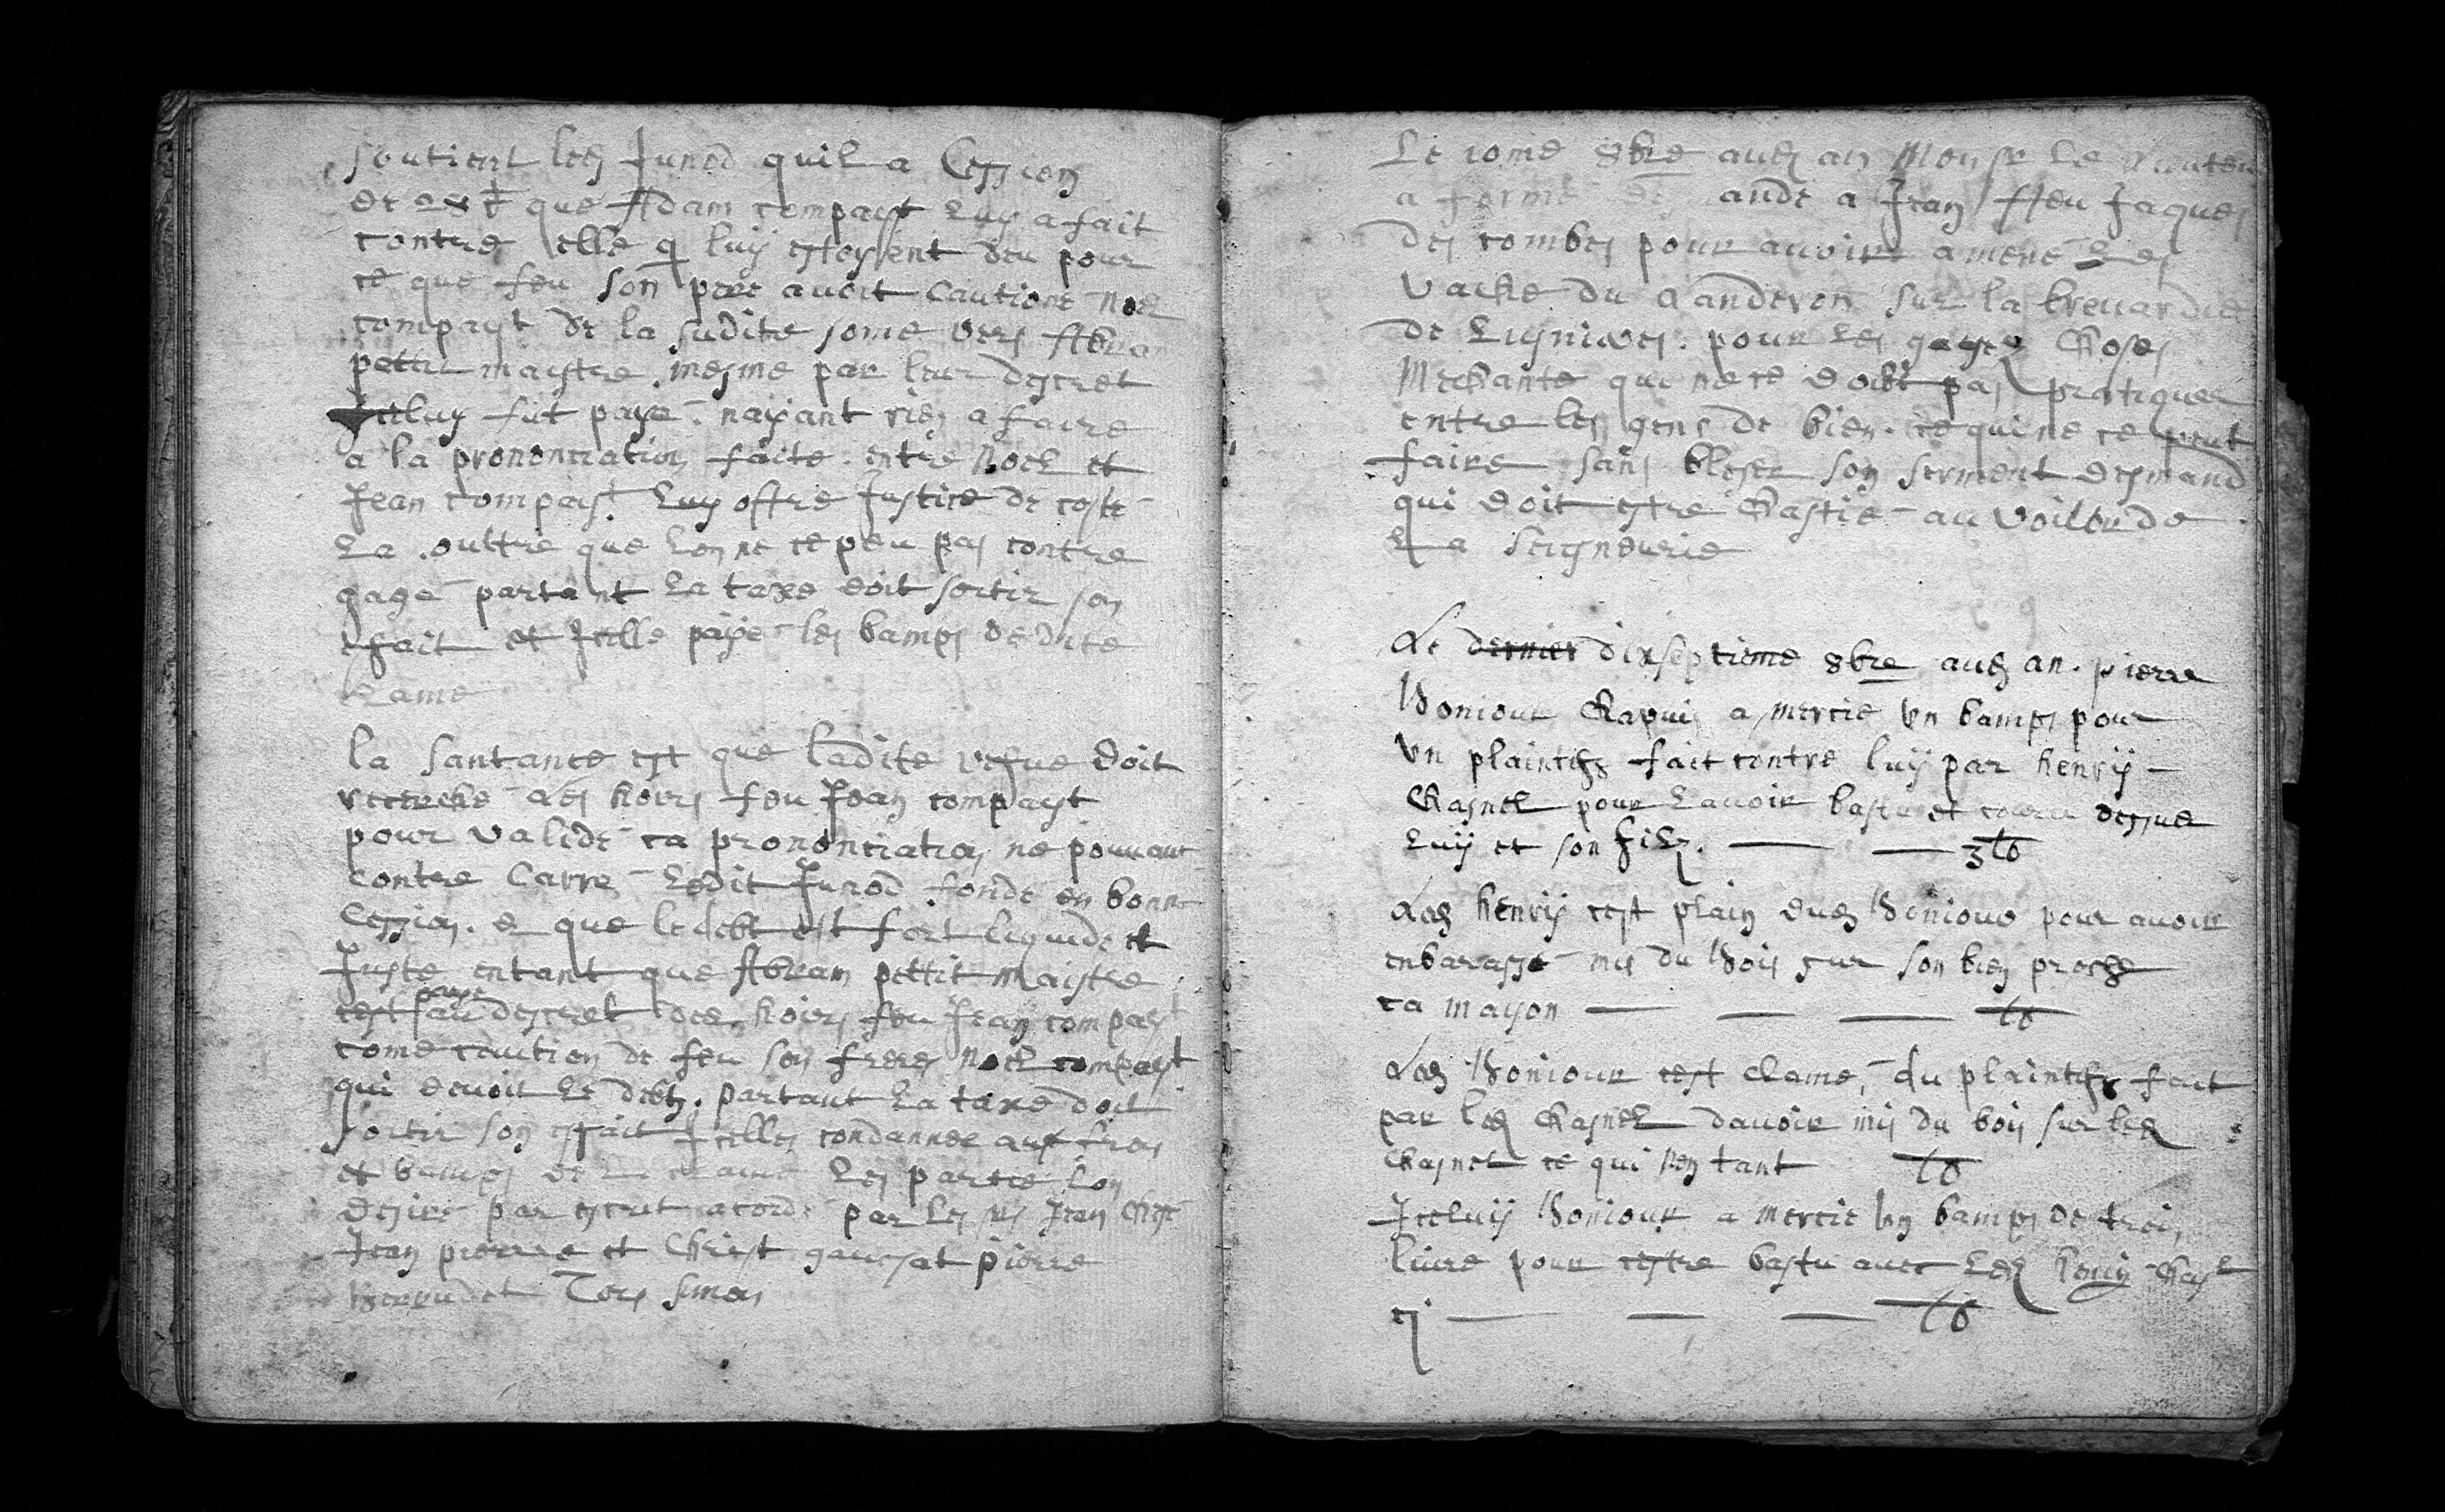 soutient led Junod quil a Cession
de que Adam compayt luy a fait
contre elle q luy estoyent deu pour
ce que feu son pere avoit Cautione Noel
compayt de la sudite some vers Abra
petit maystre. mesme par leur descret
Jceluy fut paye. nayant rien a faire
a la prononciation faite. entre Noel et
Jean compayt. Luy offre Justice de coste
La. oultre que Lon ne ce peu pas contre
gagé partant La taxe doit sortir son
effait et Jcelle paye les bamps de dite
clame
la santance est que ladite vefue doit
recerche les hoirs feu Jean compayt
pour validé ca prononciation ne pouuant
contre Carre Ledit Junod fondé en bonne
Cession. e que le debt est fort liquide et
Juste entant que Abram pettit maistre
cest paye au descret des hoirs feu Jean compayt
come caution de feu son frere Noel compayt
qui devoit Le debt. partant La taxe doit
sortir son effait Jcelles condannee aux frais
et bamps de la clame Les partie lon
desire par escrit acordé par les Jean
Jean pierre et Christ gauchat pierre
Tous
Le 10me 8bre aud an Mons le Lieuten
a formé andé a Jean ffeu Jaques
des combes pour auoir amené Les
Vache du Landeron sur la
de Lignieres. pour Les Choses
Mechante qui ne ce doibt pas pratiquer
entre les gens de bien. ce qui ne ce peut
faire sans blesser son serment
qui doit estre Chastié au Voiloir de
La Seigneurie
Le dernier dixseptieme 8bre aud an. pierre
Bonjour Chapuis a mercié un bamps pour
un plaintifs fait contre luy par henry
Chasnel pour Lavoir bastu et couru dessus
Luy et son filz. 3 lb
Led henry cest plain dud Bonjour pour auoir
enbarassé mis du Bois sur son bien proche
ca mayson lb
Led Bonjour cest clame, du plaintifs fait
par led Chasnel davoir mis du bois sur led
Chasnel ce qui tant lb
Jceluy Bonjour a mercié un bamps de trois
liure pour cestre bastu avec Led henry Chasl
cy lb